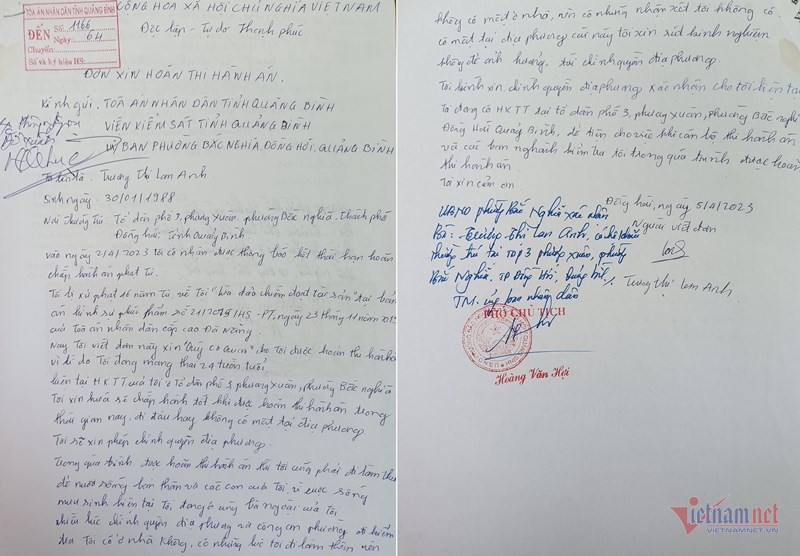 TOÀ ÁN NHÂN DÂN TỈNH QUẢNG BÌNH
ĐẾN
Số: 1166
Ngày: 6.4
Chuyển:
Số và ký hiệu HS:
CỘNG HÒA XÃ HỘI CHỦ NGHĨA VIỆT NAM
Độc lập - Tự do Hạnh phúc
ĐƠN XIN HOÃN THI HÀNH ÁN.
Kính gửi: TOÀ ÁN NHÂN DÂN TỈNH QUẢNG BÌNH
VIỆN KIỂM SÁT TỈNH QUẢNG BÌNH
UỶ BAN PHƯỜNG BẮC NGHĨA, ĐỒNG HỚI, QUẢNG BÌNH
Tôi tên là: Trương Thị Lan Anh
Sinh ngày: 30/01/1988
Nơi thường trú: Tổ dân phố 3, phường xuân, phường Bắc nghĩa, thành phố
Đồng hới, Tỉnh Quảng Bình
vào ngày 21/4/2023 tôi có nhận được thông báo hết thời hạn hoãn
chấp hành án phạt tù.
Tôi bị xử phạt 16 năm tù về tội "lừa đảo chiếm đoạt tài sản" tại bản
án hình sự phúc thẩm số /HS-PT, ngày 23 tháng 11 năm
của Toà án nhân dân cấp cao Đà Nẵng
Nay Tôi viết đơn này xin "Quý cơ quan" cho Tôi được hoãn thi hành
vì lí do Tôi đang mang thai 24 tuần tuổi
hiện tại HKTT của tôi ở Tổ dân phố 3, phường xuân, phường Bắc nghĩa
Tôi xin hứa sẽ chấp hành tốt khi được hoãn thi hành án trong
thời gian này. đi đâu hay không có mặt tại địa phương
Tôi sẽ xin phép chính quyền địa phương.
Trong quá trình được hoãn thi hành án thì tôi cũng phải đi làm
để nuôi sống bản thân và các con của tôi, vì cuộc sống
mưu sinh hiện tại Tôi đang ở cùng bà ngoại của tôi
nhiều lúc chính quyền địa phương và công an phường đi kiểm
tra Tôi có ở nhà không, có những lúc tôi đi làm thêm nên
không có mặt ở nhà, nên có những nhận xét tôi không có
có mặt tại địa phương cái này tôi xin rút kinh nghiệm
không để ảnh hưởng tới chính quyền địa phương.
Tôi kính xin chính quyền địa phương xác nhận cho tôi hiện tại
Tôi đang có HKTT tại tổ dân phố 3, phường xuân, phường Bắc nghĩa
Đồng Hới Quảng Bình. để tiện cho việc khi cán bộ thi hành án
và các ban nghành kiểm tra tôi trong quá trình được hoãn
thi hành án
Tôi xin cảm ơn
Đồng hới, ngày 5/4/2023
Người viết đơn
Trương Thị Lan Anh
UBND phường Bắc Nghĩa xác nhận
Bà: Trương Thị Lan Anh, có hộ khẩu
thường trú tại TDP 3 phường xuân, phường
Bắc Nghĩa, TP Đồng Hới, Quảng Bình./.
TM. Uỷ ban nhân dân
PHÓ CHỦ TỊCH
Hoàng Văn Hợi
Vietnamnet
VIETNAMNET.VN